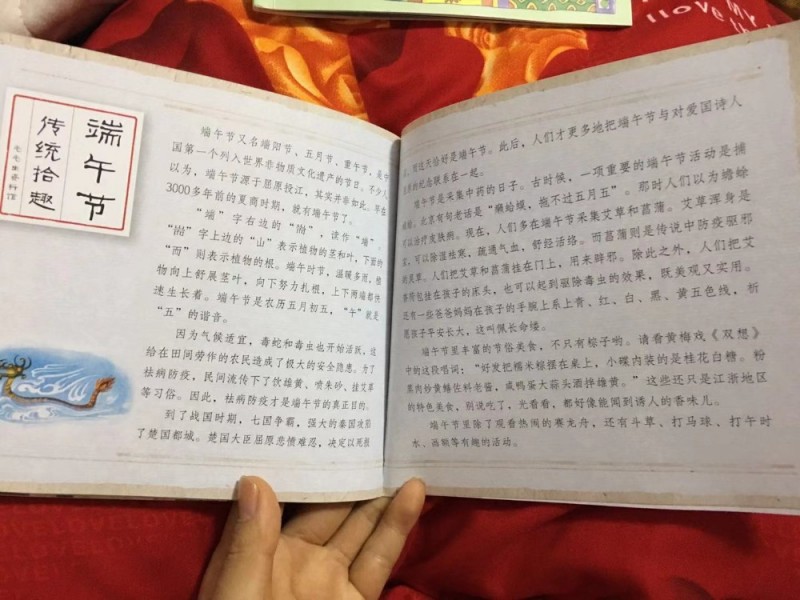 端午节
传统拾趣
端午节又名端阳节、五月节、重午节，是中
国第一个列入世界非物质文化遗产的节日。不少人
以为，端午节源于屈原投江，其实并非如此。早在
3000多年前的夏商时期，就有端午节了。
“端”字右边的“耑”，读作“端”。
“耑”字上边的“山”表示植物的茎和叶，下面的
“而”则表示植物的根。端午时节，温暖多雨，植
物向上舒展茎叶，向下努力扎根，上下两端都快
速生长着。端午节是农历五月初五，“午”就是
“五”的谐音。
因为气候适宜，毒蛇和毒虫也开始活跃，这
给在田间劳作的农民造成了极大的安全隐患。为了
祛病防疫，民间流传下了饮雄黄、喷朱砂、挂艾草
等习俗。因此，祛病防疫才是端午节的真正目的。
到了战国时期，七国争霸，强大的秦国攻陷
了楚国都城。楚国大臣屈原悲愤难忍，决定以死报
国，而这天恰好是端午节。此后，人们才更多地把端午节与对爱国诗人
屈原的纪念联系在一起。
端午节是采集中药的日子。古时候，一项重要的端午节活动是捕
蟾蜍。北京有句老话是“癞蛤蟆，拖不过五月五”。那时人们以为蟾蜍
可以治疗皮肤病。现在，人们多在端午节采集艾草和菖蒲。艾草浑身是
宝，可以除湿祛寒，疏通气血，舒经活络。而菖蒲则是传说中防疫驱邪
的灵草。人们把艾草和菖蒲挂在门上，用来辟邪。除此之外，人们把艾
草荷包挂在孩子的床头，也可以起到驱除毒虫的效果，既美观又实用。
还有一些爸爸妈妈在孩子的手腕上系上青、红、白、黑、黄五色线，祈
愿孩子平安长大，这叫佩长命缕。
端午节里丰富的节俗美食，不只有粽子哟。请看黄梅戏《双想》
中的这段唱词：“好发把糯米粽摆在桌上，小碟内装的是桂花白糖。粉
熏肉炒黄鳝佐料老姜，咸鸭蛋大蒜头酒拌雄黄。”这些还只是江浙地区
的特色美食，别说吃了，光看看，都好像能闻到诱人的香味儿。
端午节里除了观看热闹的赛龙舟，还有斗草、打马球、打午时
水、画额等有趣的活动。